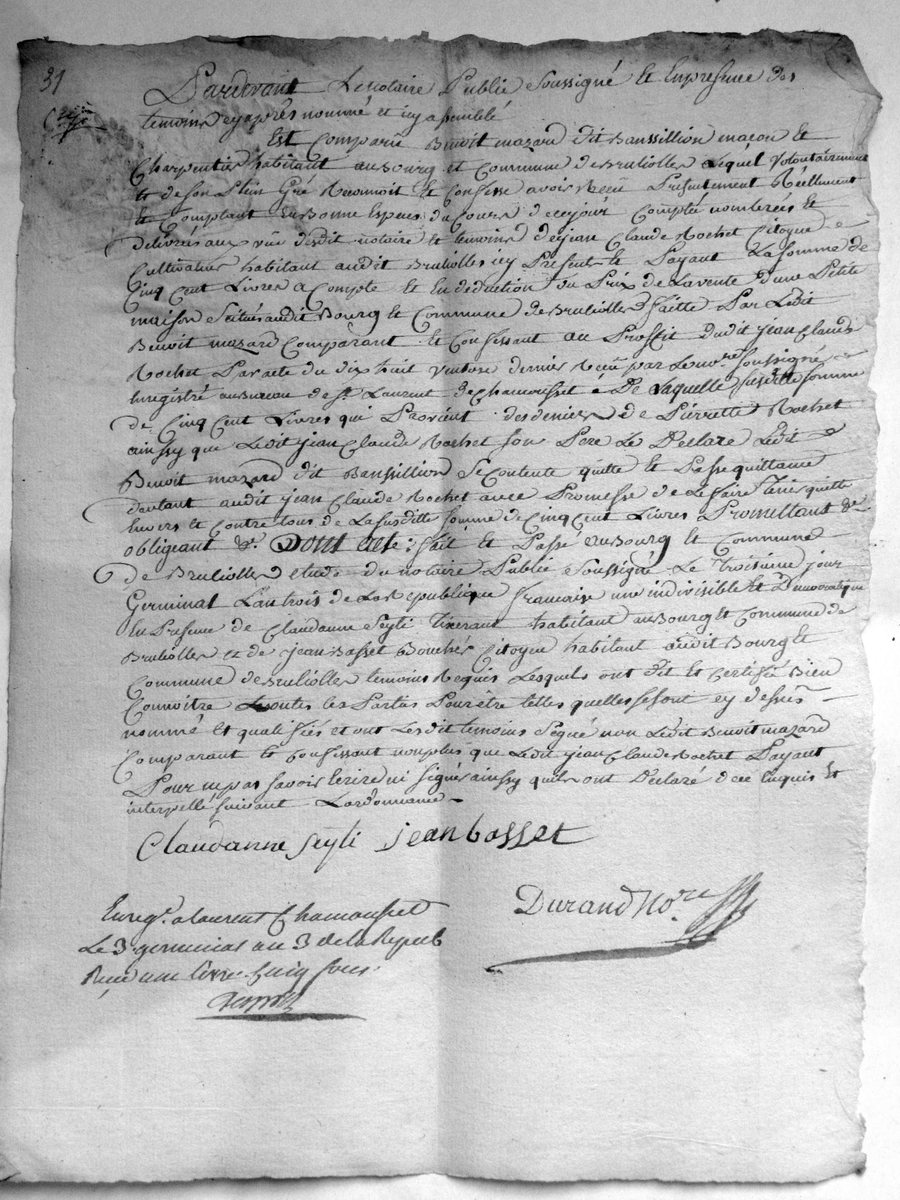 31
Pardevant Le notaire Public Soussigné Et En presence des
temoins cy après nommé et icy assemblé
Est Comparû Benoit mazard dit Banssillion maçon Et
Charpentier habitant au Bourg Et Commune de Brulioller Lequel Volontairement
Et de Son Plein Gré Reconnoit Et Confesse avoir Reçeu Presentement Réellement
Et Comptant En Bonne Especes du Cours de ce jour Comptée nombrées Et
delivrés aux vüe desdit notaire Et temoins de jean Claude Rochet Citoyen
Cultivateur habitant audit Brulioller icy Present Et Payant La Somme de
Cinq Cent Livres a Compte Et En deduction du Prix de La vente d'une Petite
maison Scituée audit Bourg Et Commune de Brulioller faitte Par Ledit
Benoit mazard Comparant Et Confessant au Proffit dudit jean Claude
Rochet Par acte du dix huit Ventose dernier Reçeu par Le no.re Soussigné
Enregistré au Bureau de S.t Laurent de Chamousset De Laquelle Susditte Somme
de Cinq Cent Livres qui Provient des denier de Pierrette Rochet
ainssy que Ledit jean Claude Rochet Son Pere Le Declare Ledit
Benoit mazard dit Banssillion Se Contente quitte Et Passe quittance
dautant audit jean Claude Rochet avec Promesse de Le faire Tenir quitte
Envers Et Contre tous de La Susditte Somme de Cinq Cent Livres Promettant &.
obligeant &. Dont acte : fait Et Passé au Bourg Et Commune
de Brulioller etude du notaire Public Soussigné Le Troisieme jour
Germinal L'an trois de La Republique francaise une indivisible Et Democratique
En Presence de Claudanne Seyti Tixerant habitant au Bourg Et Commune de
Brulioller Et de jean Basset Boucher Citoyen habitant audit Bourg Et
Commune de Brulioller temoins Requis Lesquels ont dit Et Certifié Bien
Connoitre Toutes Les Parties Pour être telles quelles Sesont cy dessus
nommé Et qualiffiées et ont Lesdit temoins Signé non Ledit Benoit mazard
Comparant Et Confessant nonplus que Ledit jean Claude Rochet Payant
Pour ne pas Savoir Ecrire ni Signé ainssy quils ont Declaré de ce Enquis Et
interpellé Suivant Lordonnance
Claudanne Seyti jean basset
Durand No.re
Enreg.é a laurent Chamousset
Le 3 germinal an 3 de la Repub
Reçu une livre cinq sous